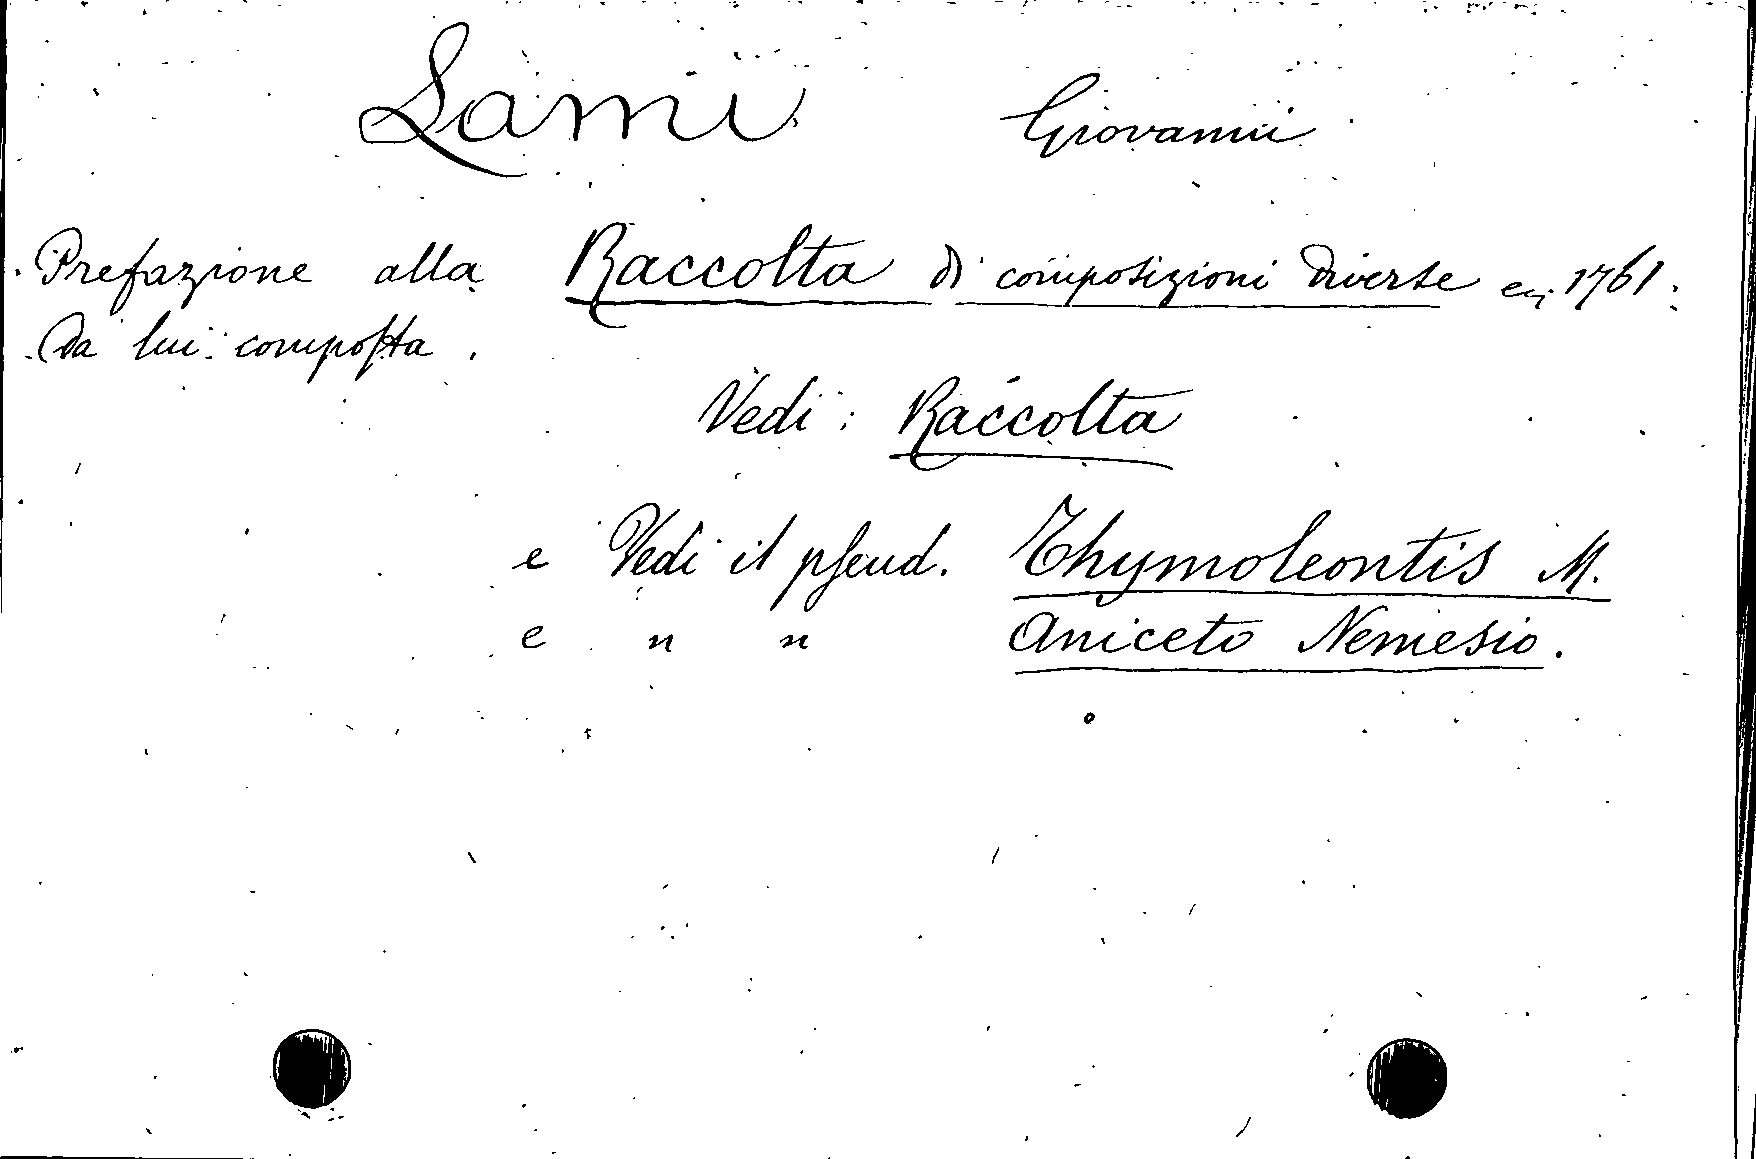 Lami Giovanni
Prefazione alla Raccolta di composizioni diverse 1761.
Da lui composta.
Vedi: Raccolta
e Vedi il pseud. Thymoleontis M.
e " " Aniceto Nemesio.